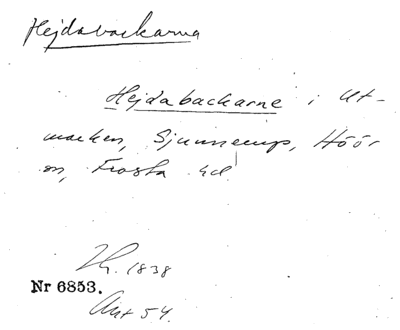 Hejdabackarna
Hejdabackarne i Ut-
marken, Sjunnerup, Höör
sn, Frosta hd
1838
Nr 6853.
Ant 54.